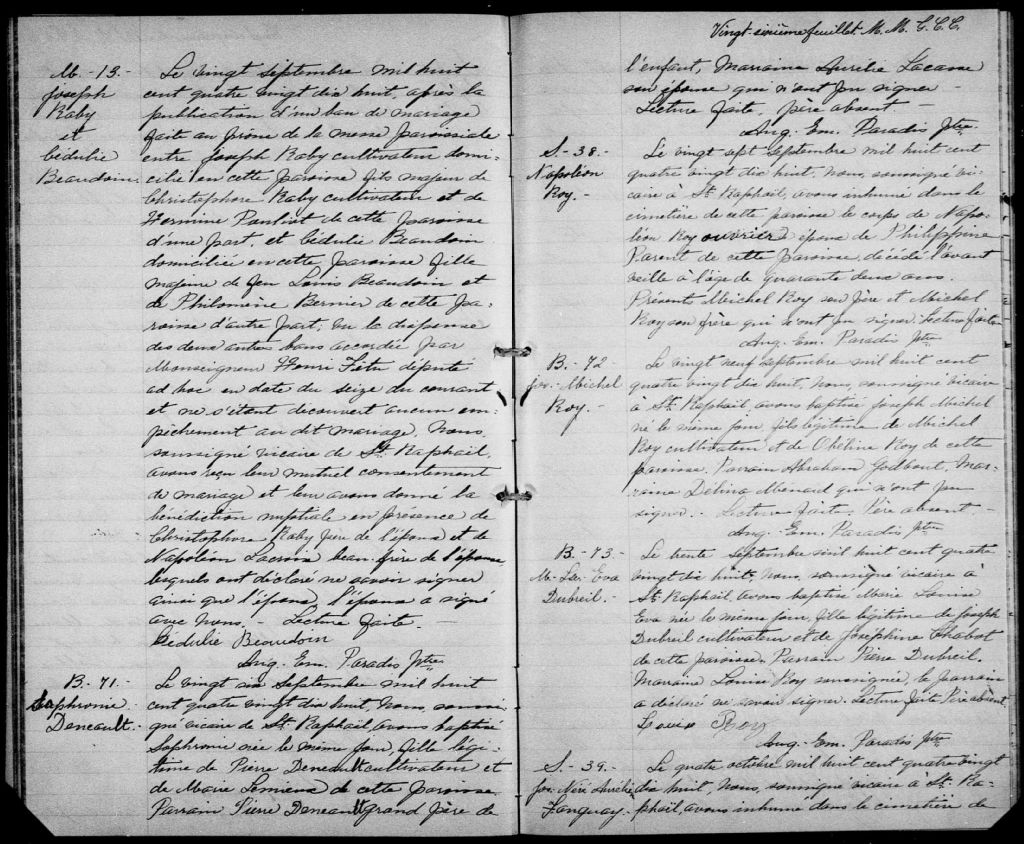 M. -13.-
Joseph
Raby
et
Cédulie
Beaudoin.
Le vingt septembre mil huit
cent quatre vingt dix huit après la
publication d'un ban de mariage
faite au prône de la messe paroissiale
entre Joseph Raby cultivateur domi-
cilié en cette paroisse fils majeur de
Christophore Raby cultivateur et de
Hermine Pouliot de cette paroisse
d'une part, et Cédulie Beaudoin
domiciliée en cette paroisse fille
majeure de feu Louis Beaudoin et
de Philomène Bernier de cette pa-
roisse d'autre part; vu la dispense
des deux autres bans accordée par
Monseigneur Henri Têtu député
ad hoc en date du seize du courant
et ne s'étant découvert aucun em-
pêchement au dit mariage, Nous,
soussigné vicaire de St Raphaël,
avons reçu leur mutuel consentement
de mariage et leur avons donné la
bénédiction nuptiale en présence de
Christophore Raby père de l'époux et de
Napoléon Lacroix beau-frère de l'épouse
lesquels ont déclaré ne savoir signer
ainsi que l'époux, l'épouse a signé
avec nous. - Lecture faite. -
Cédulie Beaudoin
Aug. Em. Paradis Ptre
B. -71.-
Sophronie
Deneault.-
Le vingt six Septembre mil huit
cent quatre vingt dix huit Nous, soussi-
gné vicaire de St. Raphaël, avons baptisé
Sophronie née le même jour, fille légi-
time de Pierre Deneault cultivateur et
de Marie Lemieux de cette paroisse.
Parrain Pierre Deneault grand père de
Vingt-sixième feuillet. M. M. C. C. C.
l'enfant, Marraine Aurélie Lacasse
son épouse qui n'ont pu signer -
Lecture faite, père absent -
Aug. Em. Paradis Ptre
S. -38.-
Napoléon
Roy.-
Le vingt sept Septembre mil huit cent
quatre vingt dix huit, Nous, soussigné vi-
caire à St. Raphaël, avons inhumé dans le
cimetière de cette paroisse le corps de Napo-
léon Roy ouvrier époux de Philippine
Parent de cette paroisse, décédé l'avant
veille à l'âge de quarante deux ans.
Présent Michel Roy son père et Michel
Roy son frère qui n'ont pu signer. Lecture faite
Aug. Em. Paradis Ptre
B. -72
Jos. Michel
Roy.-
Le vingt neuf septembre mil huit cent
quatre vingt dix huit, Nous, soussigné vicaire
à St. Raphaël, avons baptisé Joseph Michel
né le même jour, fils légitime de Michel
Roy cultivateur et de Obéline Roy de cette
paroisse. Parrain Abraham Godbout, Mar-
raine Délina Ménard qui n'ont pu
signer. - Lecture faite, Père absent -
Aug. Em. Paradis Ptre
B. -73.-
M. Ls. Eva
Dubreil.-
Le trente septembre mil huit cent quatre
vingt dix huit, Nous, soussigné vicaire à
St. Raphaël, avons baptisé Marie Louise
Eva née le même jour, fille légitime de Joseph
Dubreil cultivateur et de Joséphine Chabot
de cette paroisse. Parrain Pierre Dubreil.
Marraine Louise Roy soussignée, le parrain
a déclaré ne savoir signer. Lecture faite Père absent.
Louise Roy
Aug. Em. Paradis Ptre
S. -39.-
Jos. Néré Aurélie
Tanguay.-
Le quatre octobre mil huit cent quatre vingt
dix huit, Nous, soussigné vicaire à St. Ra-
phaël, avons inhumé dans le cimetière de